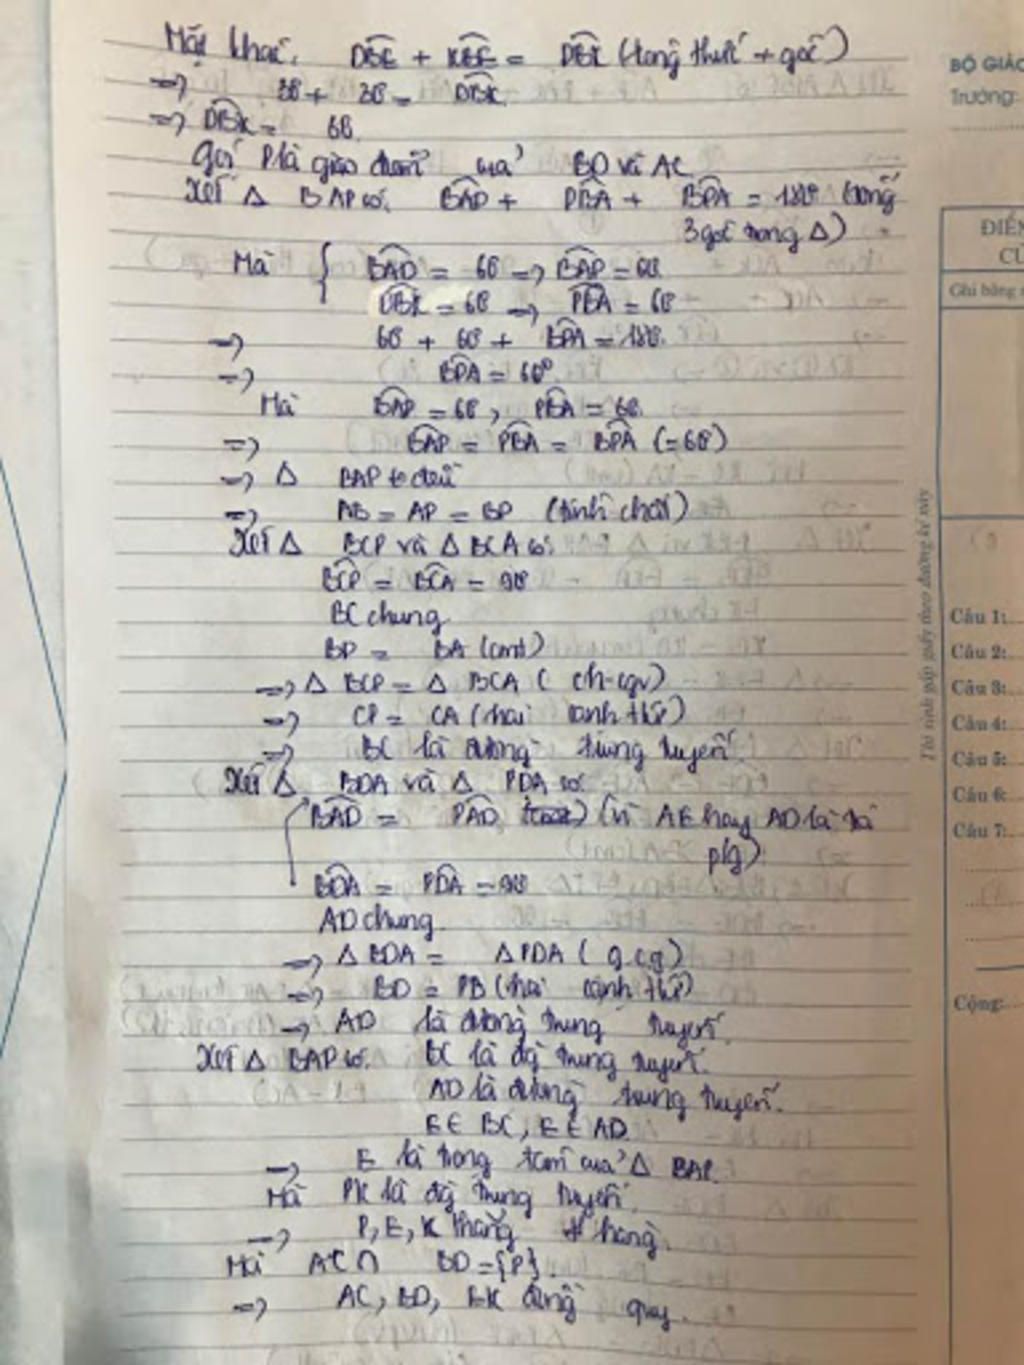 Mặt khác, DBE + KBE = DBK (tổng thức + góc)
=> 30 + 30 = DBK
=> DBK = 60
Gọi P là giao điểm của BD và AC
Xét Δ BAP có: BAP + PBA + BPA = 180° (tổng
3 góc trong Δ)
Mà { BAD = 60 => BAP = 60
DBK = 60 => PBA = 60
=> 60 + 60 + BPA = 180
=> BPA = 60°
Mà BAP = 60, PBA = 60
=> BAP = PBA = BPA (=60)
=> Δ BAP là đều
=> AB = AP = BP (tính chất)
Xét Δ BCP và Δ BCA có:
BCP = BCA = 90
BC chung
BP = BA (cmt)
=> Δ BCP = Δ BCA ( ch-cgv)
=> CP = CA (hai cạnh t/ứ)
=> BC là đường trung tuyến
Xét Δ BDA và Δ PDA có:
BAD = PAD (vì AE hay AD là tia
p/g)
BDA = PDA = 90
AD chung
=> Δ BDA = Δ PDA ( g.c.g)
=> BD = PB (hai cạnh t/ứ)
=> AD là đường trung tuyến
Xét Δ BAP có: BC là đg trung tuyến.
AD là đường trung tuyến.
E ∈ BC, E ∈ AD
=> E là trọng tâm của Δ BAP
Mà PK là đg trung tuyến.
=> P, E, K thẳng hàng.
Mà AC ∩ BD = {P}.
=> AC, BD, EK đồng quy.
BỘ GIÁO
Trường:
ĐIỂM
Ghi bằng
Thí sinh gấp giấy theo đường kẻ này
Câu 1:
Câu 2:
Câu 3:
Câu 4:
Câu 5:
Câu 6:
Câu 7:
Cộng: